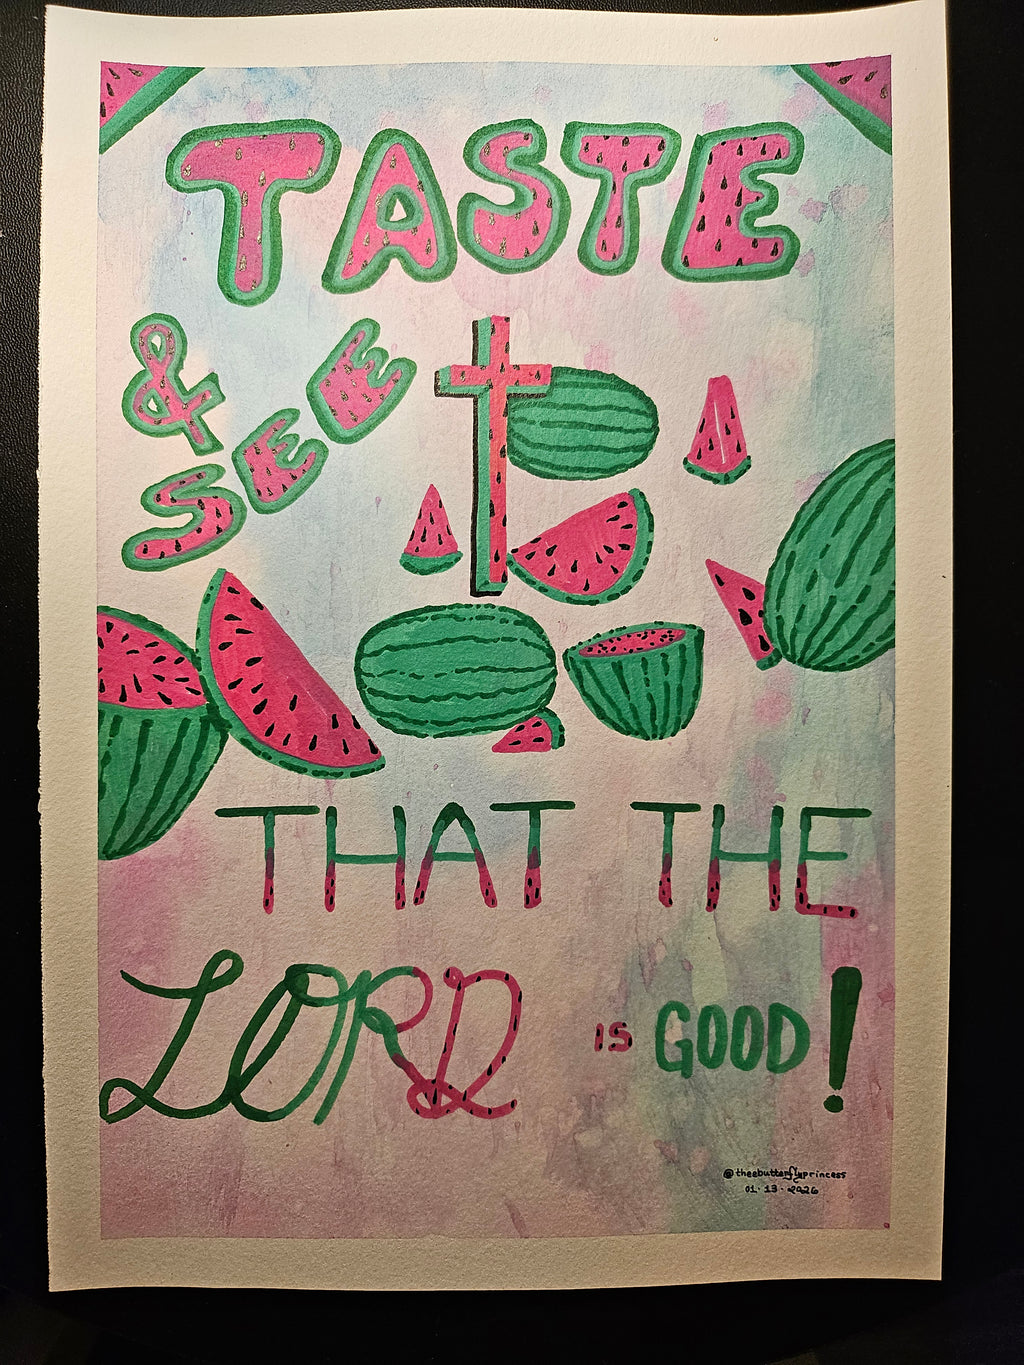 TASTE
& SEE
THAT THE
LORD is GOOD!
@theebutterflyprincess
01·13·2026